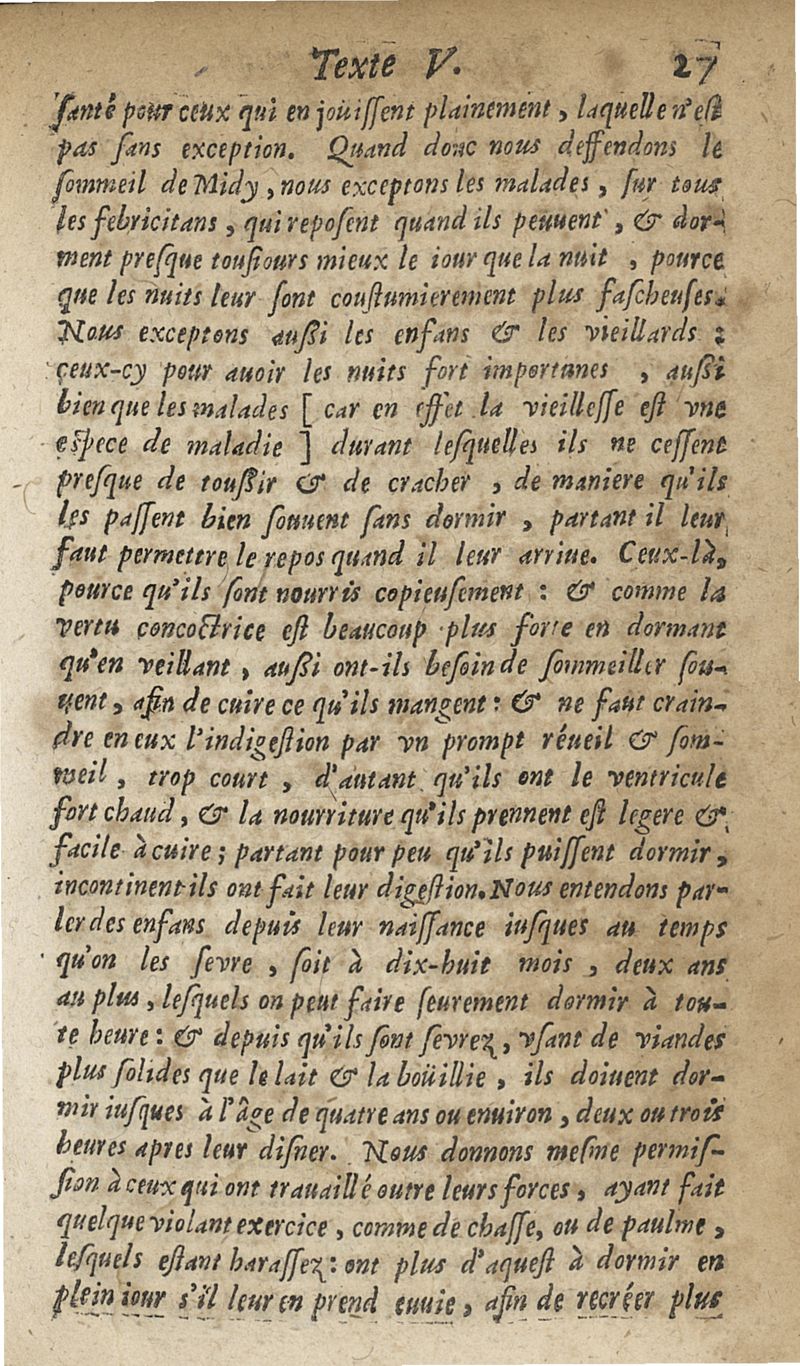 Texte V. 27
ſanté pour ceux qui en joüiſſent plainement, laquelle n'eſt
pas ſans exception. Quand donc nous deffendons le
ſommeil de Midy, nous exceptons les malades, ſur tous
les febricitans, qui repoſent quand ils peuuent, & dor-
ment preſque touſiours mieux le iour que la nuit, pource
que les nuits leur ſont couſtumierement plus faſcheuſes.
Nous exceptons auſſi les enfans & les vieillards :
ceux-cy pour auoir les nuits fort importunes, auſſi
bien que les malades [ car en effet la vieilleſſe eſt vne
eſpece de maladie ] durant leſquelles ils ne ceſſent
preſque de touſſir & de cracher, de maniere qu'ils
les paſſent bien ſouuent ſans dormir, partant il leur
faut permettre le repos quand il leur arriue. Ceux-là,
pource qu'ils ſont nourris copieuſement : & comme la
vertu concoctrice eſt beaucoup plus forte en dormant
qu'en veillant, auſſi ont-ils beſoin de ſommeiller ſou-
uent, afin de cuire ce qu'ils mangent : & ne faut crain-
dre en eux l'indigeſtion par vn prompt réueil & ſom-
meil, trop court, d'autant qu'ils ont le ventricule
fort chaud, & la nourriture qu'ils prennent eſt legere &
facile à cuire ; partant pour peu qu'ils puiſſent dormir,
incontinent ils ont fait leur digeſtion. Nous entendons par-
ler des enfans depuis leur naiſſance iuſques au temps
qu'on les ſevre, ſoit à dix-huit mois, deux ans
au plus, leſquels on peut faire ſeurement dormir à tou-
te heure : & depuis qu'ils ſont ſevrez, vſant de viandes
plus ſolides que le lait & la boüillie, ils doiuent dor-
mir iuſques à l'âge de quatre ans ou enuiron, deux ou trois
heures apres leur diſner. Nous donnons meſme permiſ-
ſion à ceux qui ont trauaillé outre leurs forces, ayant fait
quelque violant exercice, comme de chaſſe, ou de paulme,
leſquels eſtant haraſſez : ont plus d'aqueſt à dormir en
plein iour s'il leur en prend enuie, afin de recréer plus